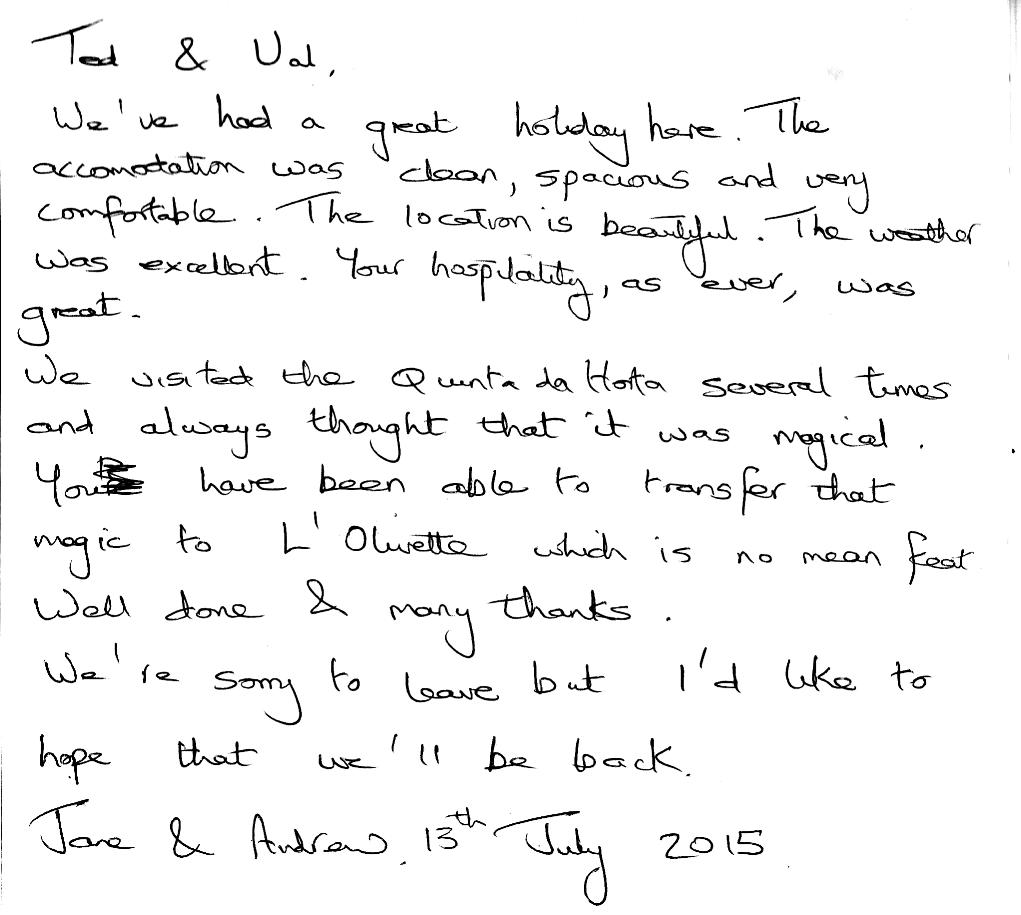 Ted & Val,
We've had a great holiday here. The
accomodation was clean, spacious and very
comfortable. The location is beautiful. The weather
was excellent. Your hospitality, as ever, was
great.
We visited the Quinta da Horta several times
and always thought that it was magical.
You have been able to transfer that
magic to L'Olivette which is no mean feat
Well done & many thanks.
We're sorry to leave but I'd like to
hope that we'll be back.
Jane & Andrew. 13th July 2015